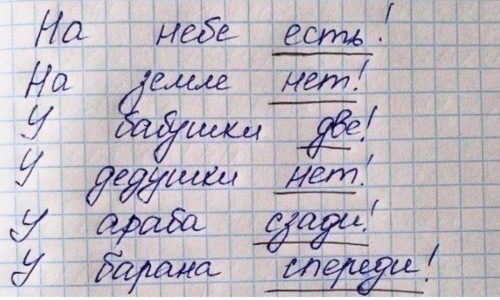 На небе есть!
На земле нет!
У бабушки две!
У дедушки нет!
У араба сзади!
У барана спереди!